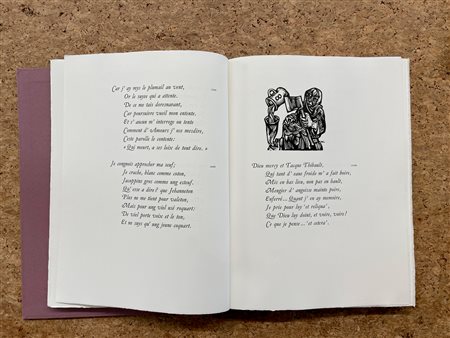 Car j' ay mys le plumail au vent,
Or le suyve qui a attente.
De ce me tais doresnavant,
Car poursuivre vueil mon entente.
Et s' aucun m' interroge ou tente
Comment d' Amours j' ose mesdire,
Ceste parolle le contente:
« Qui meurt, a ses loix de tout dire. »
Je congnois approcher ma seuf;
Je crache, blanc comme coton,
Jacoppins gros comme ung esteuf.
Qu' esse a dire? que Jehanneton
Plus ne me tient pour valeton,
Mais pour ung viel usé roquart:
De viel porte voix et le ton,
Et ne suys qu' ung jeune coquart.
Dieu mercy et Tacque Thibault,
Qui tant d' eaue froide m' a fait boire,
Mis en bas lieu, non pas en hault,
Mengier d' angoisse mainte poire,
Enferré... Quant j' en ay memoire,
Je prie pour luy 'et reliqua',
Que Dieu luy doint, et voire, voire!
Ce que je pense... 'et cetera'.